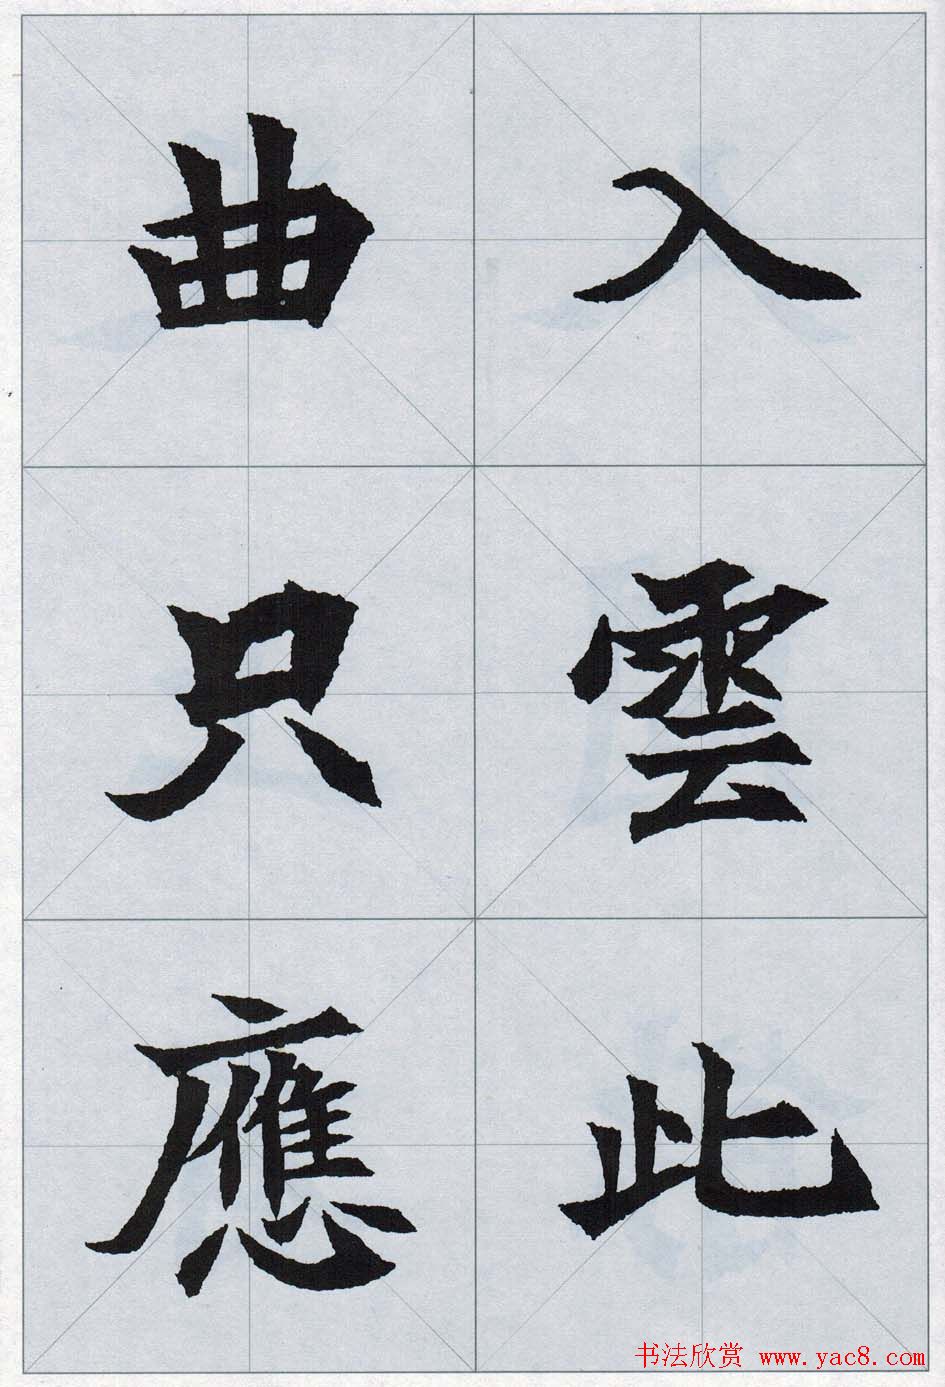 入雲此
曲只應
书法欣赏 www.yac8.com